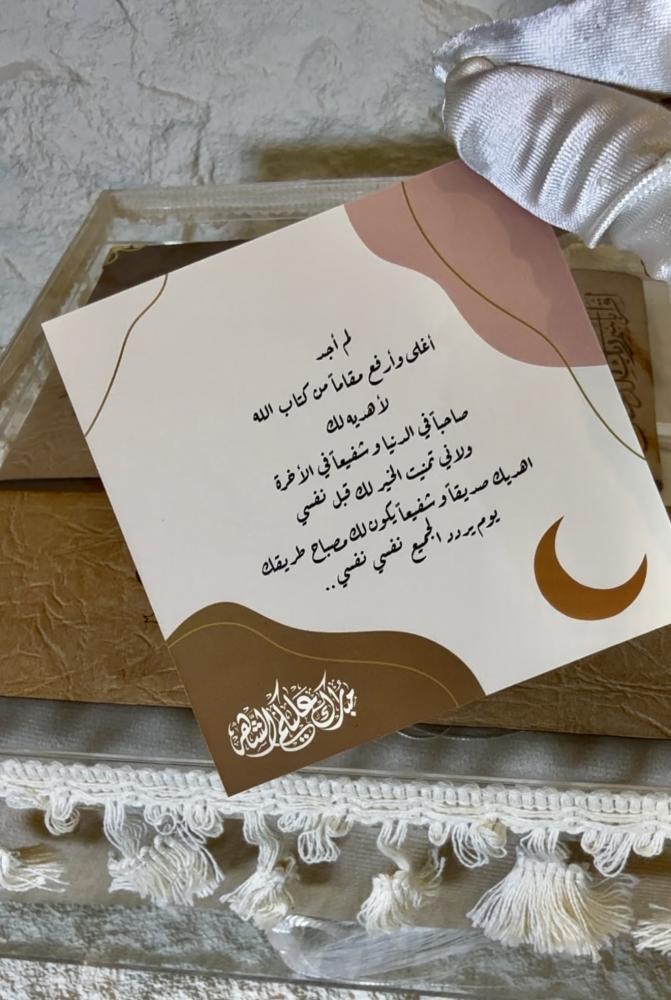 لم أجد
أغلى وأرفع مقاماً من كتاب الله
لأهديه لك
صاحباً في الدنيا و شفيعاً في الأخرة
ولاني تمنيت الخير لك قبل نفسي
اهديك صديقاً و شفيعاً يكون لك مصباح طريقك
يوم يردد الجميع نفسي نفسي ..
مبارك عليكم الشهر